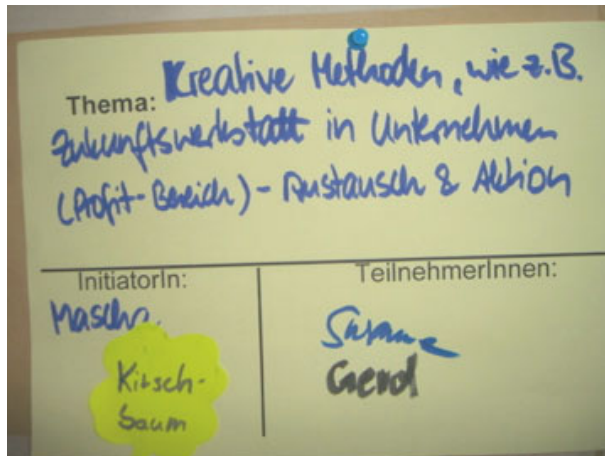 Thema: Kreative Methoden, wie z.B.
Zukunftswerkstatt in Unternehmen
(Profit-Bereich) - Austausch & Aktion
InitiatorIn:
Mascha
Kirsch-
baum
TeilnehmerInnen:
Susanne
Gerd